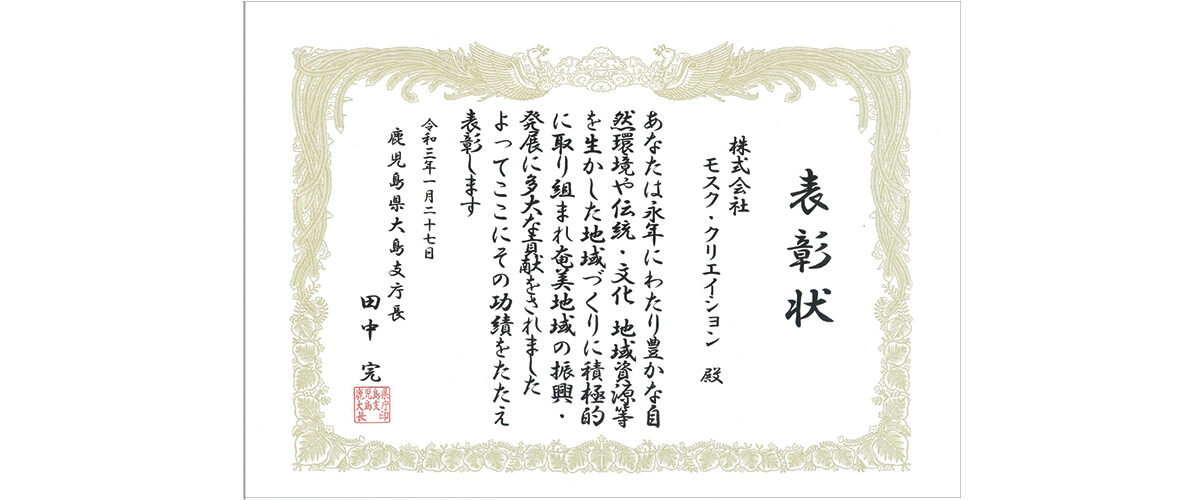 表彰状
株式会社
モスク・クリエイション 殿
あなたは永年にわたり豊かな自
然環境や伝統・文化 地域資源等
を生かした地域づくりに積極的
に取り組まれ奄美地域の振興・
発展に多大な貢献をされました
よってここにその功績をたたえ
表彰します
令和三年一月二十七日
鹿児島県大島支庁長
田中 完
県庁印
島支
児島
鹿大長